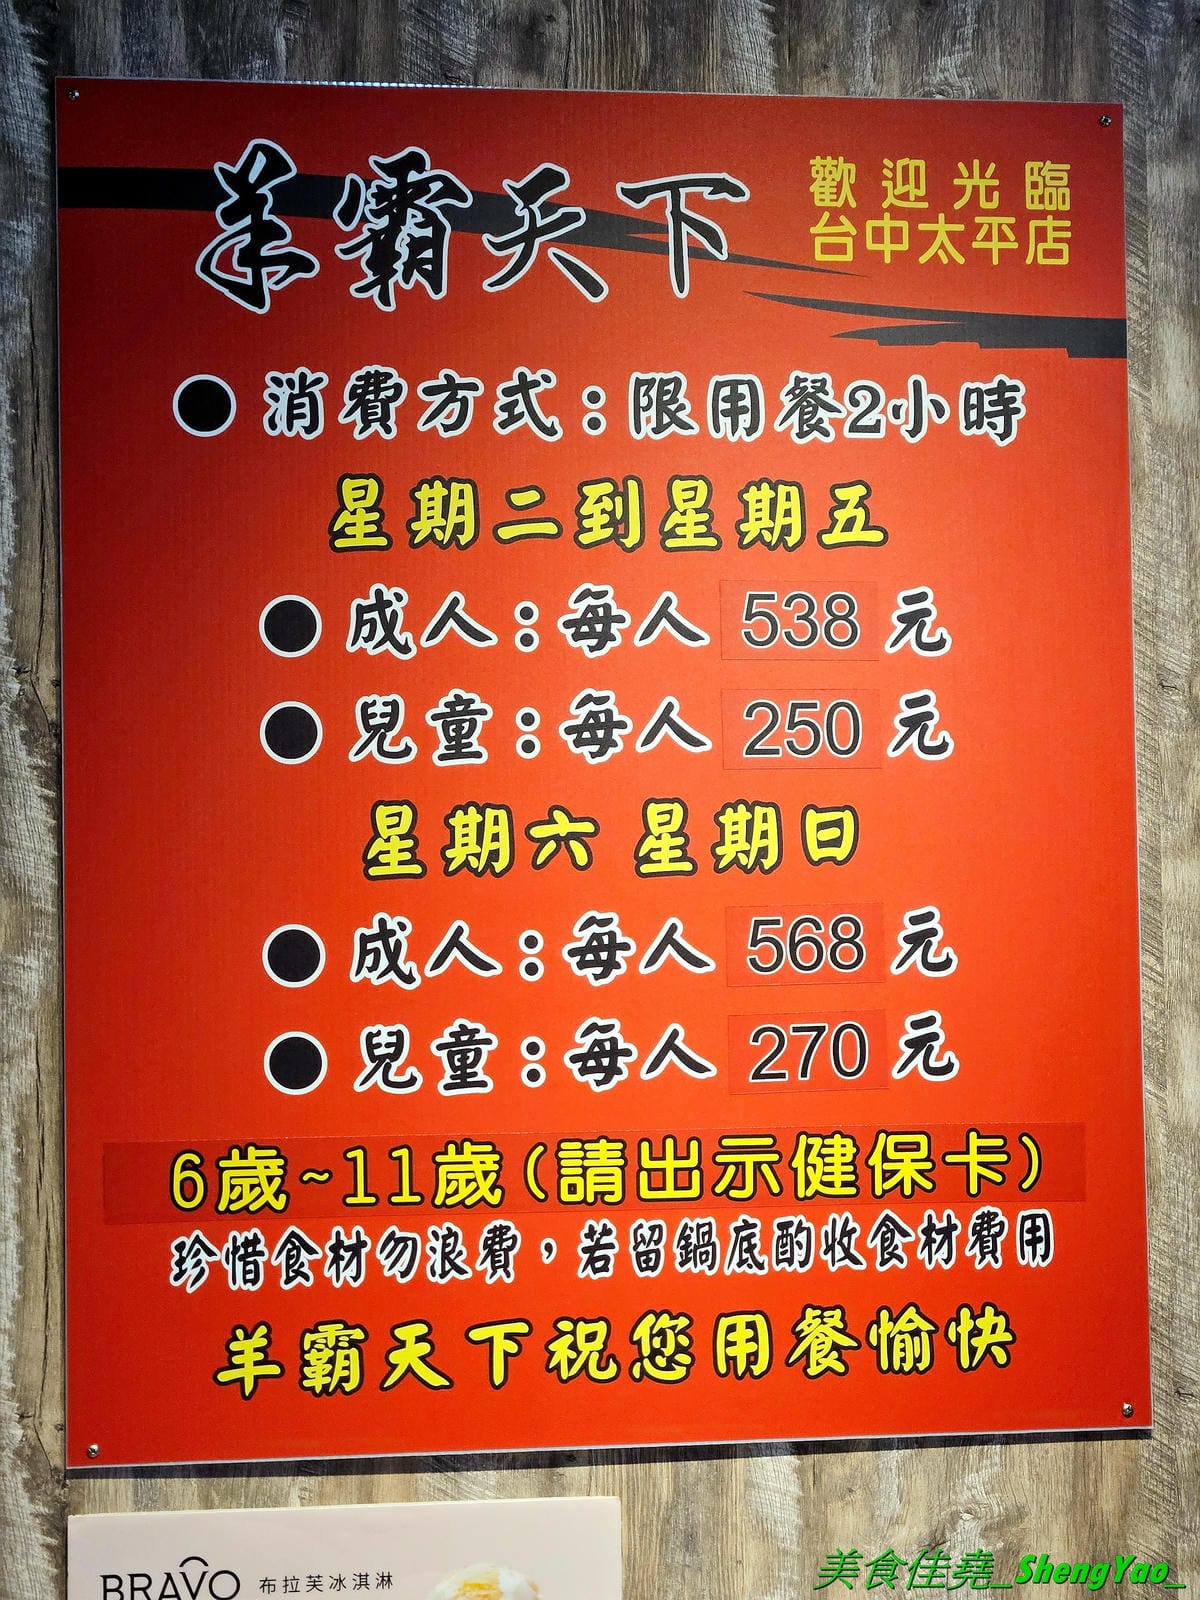 羊霸天下
歡迎光臨
台中太平店
● 消費方式：限用餐2小時
星期二到星期五
● 成人：每人 538 元
● 兒童：每人 250 元
星期六 星期日
● 成人：每人 568 元
● 兒童：每人 270 元
6歲~11歲(請出示健保卡)
珍惜食材勿浪費，若留鍋底酌收食材費用
羊霸天下祝您用餐愉快
BRAVO 布拉芙冰淇淋
美食佳堯_ShengYao_